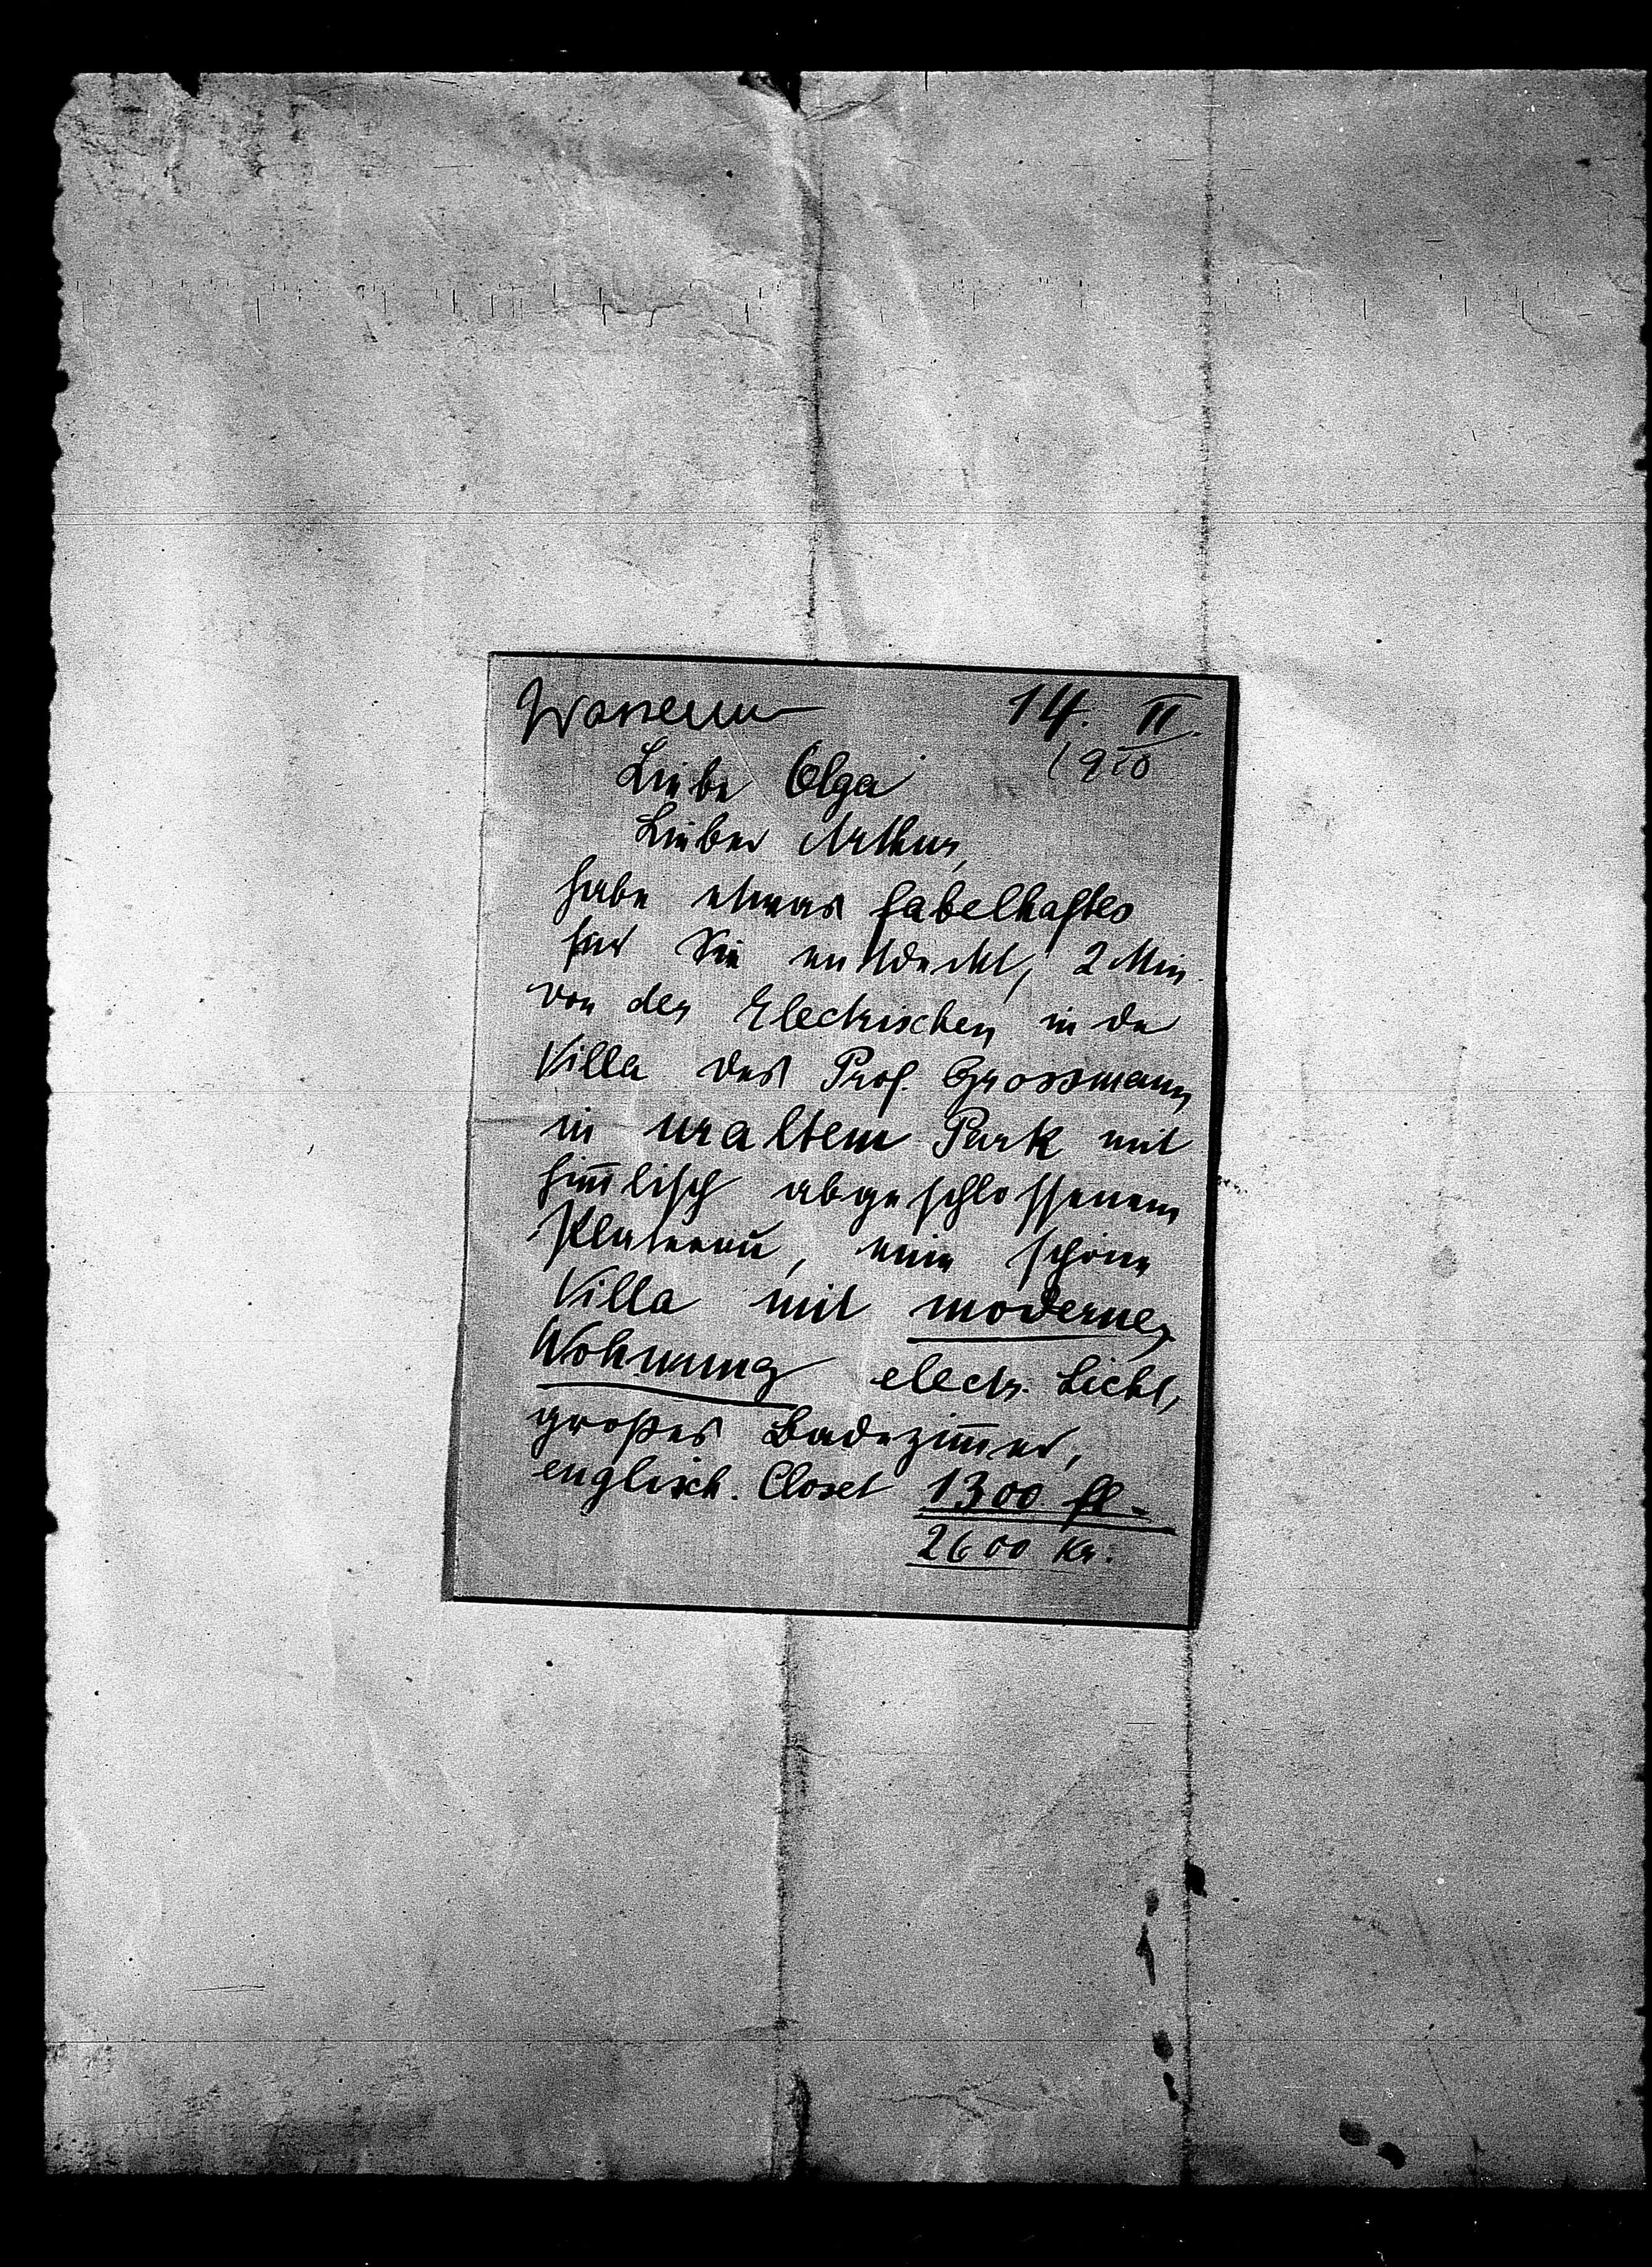 Wasserm 14. II.
1910
Liebe Olga
Lieber Arthur,
habe etwas fabelhaftes
für Sie entdeckt, 2 Min.
von der Electrischen in der
Villa des Prof. Grossmann
in uraltem Park mit
him̅lisch abgeschlossenem
Plateau, eine schöne
Villa mit moderner
Wohnung electr. Licht,
großes Badezim̅er,
englisch. Closet 1300 fl.
2600 Kr.